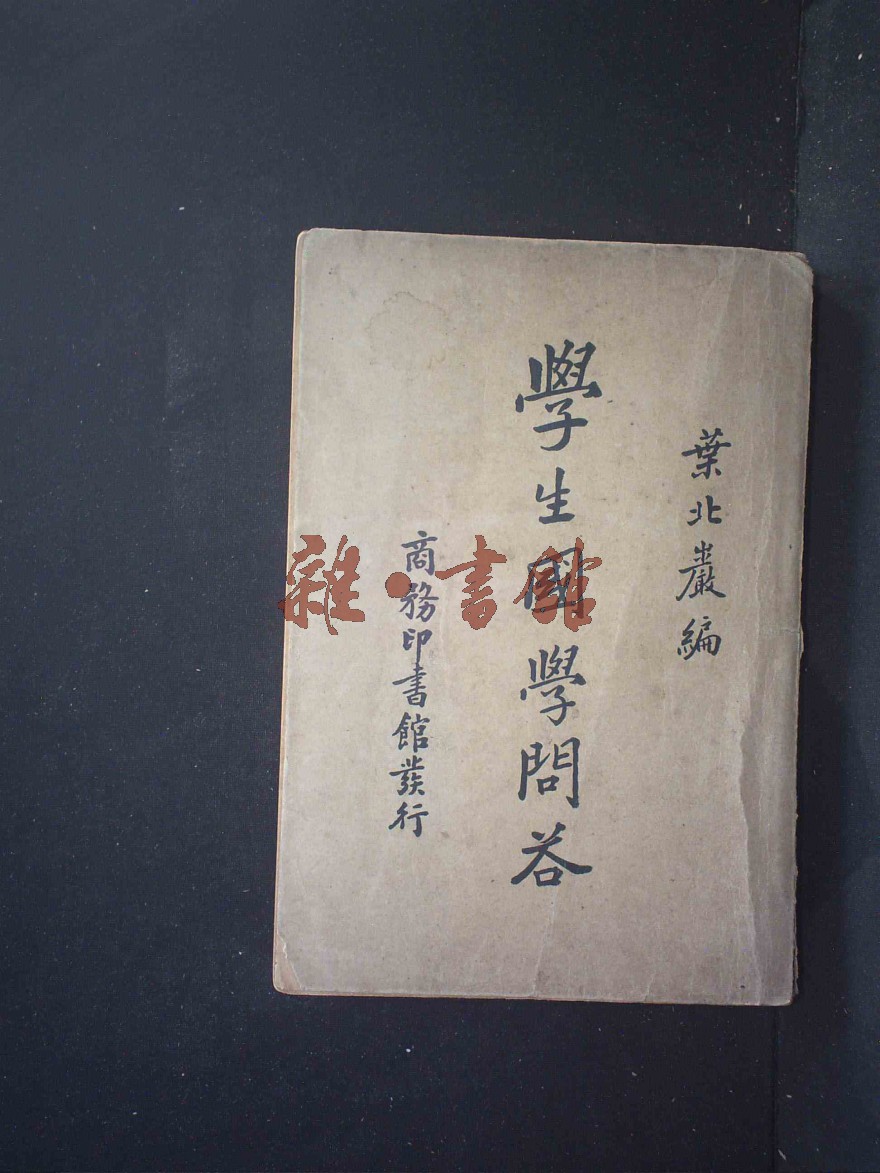 葉北巖編
學生國學問答
商務印書館發行
雜·書館